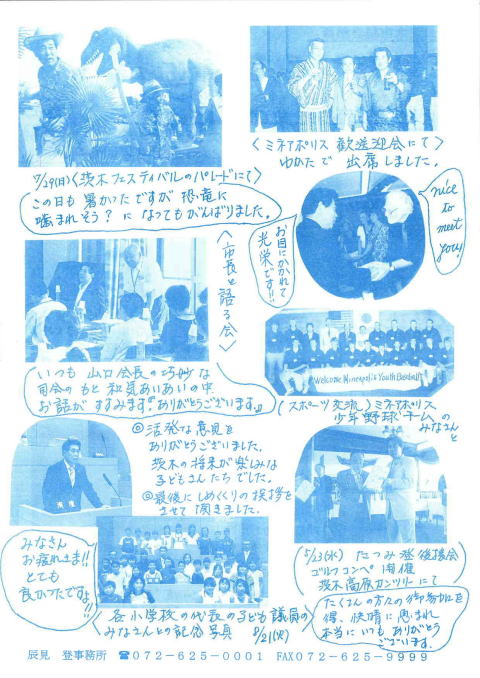 7/29(日)〈茨木フェスティバルのパレードにて〉
この日も暑かったですが恐竜に
噛まれそう？になってもがんばりました。
〈ミネアポリス 歓送迎会にて〉
ゆかたで 出席しました。
nice
to
meet
you!
お目にかかれて
光栄です!!
〈市長と語る会〉
いつも 山口会長の巧妙な
司会のもと 和気あいあいの中
お話が すすみます。ありがとうございます。
Welcome Minneapolis Youth Baseball
(スポーツ交流) ミネアポリス
少年野球チームの
みなさんと
◎活発な意見を
ありがとうございました。
茨木の将来が楽しみな
子どもさんたちでした。
◎最後にしめくくりの挨拶を
させて頂きました。
みなさん
お疲れさま!!
とても
良かったですよ!!
〈各小学校の代表の子ども議員の
みなさんとの記念写真
8/21(火)
5/23(水) たつみ登後援会
ゴルフコンペ開催
茨木高原カンツリーにて
たくさんの方々の御参加を
得、快晴に恵まれ
本当にいつもありがとう
ございます。
辰見 登事務所 ☎072-625-0001 FAX072-625-9999